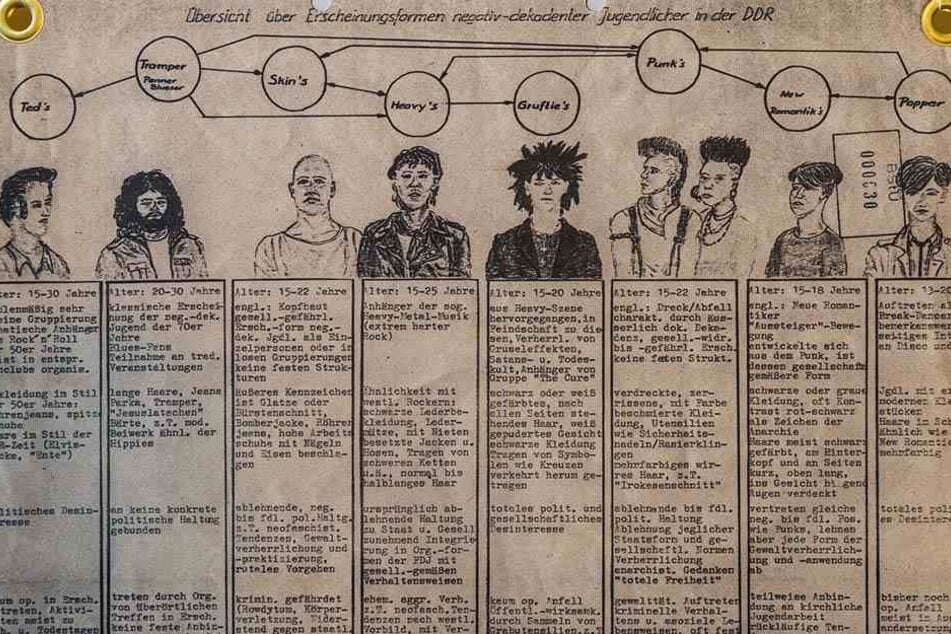 Übersicht über Erscheinungsformen negativ-dekadenter Jugendlicher in der DDR
Ted's
Tramper
Penner
Blueser
Skin's
Heavy's
Gruftie's
Punk's
New
Romantik's
Popper
000030
ter: 15-30 Jahre
lenmäßig sehr
eine Gruppierung
atische Anhänger
n Rock'n'Roll
r 50er Jahre
ist in entpr.
nclubs organis.
kleidung im Stil
r 50er Jahre:
hrenjeans, spitze
huhe
are im Stil der
-Zeit (Elvis-
cke, "Ente")
olitisches Desin-
resse
um op. in Ersch.
treten, Aktivi-
ten meist zu
u. Todestagen
Alter: 20-30 Jahre
klassische Erschei-
nung der neg.-dek.
Jugend der 70er
Jahre
Blues-Fans
Teilnahme an trad.
Veranstaltungen
lange Haare, Jeans
Parka, Tramper,
"Jesuslatschen"
Bärte, z.T. mod.
Beiwerk ähnl. der
Hippies
an keine konkrete
politische Haltung
gebunden
treten durch Org.
von überörtlichen
Treffen in Ersch.
keine feste Anbin-
Alter: 15-22 Jahre
engl.: Kopfhaut
gesell.-gefährl.
Ersch.-form neg.-
dek. Jgdl. als Ein-
zelpersonen oder in
losen Gruppierungen
keine festen Struk-
turen
äußeres Kennzeichen
ist Glatze oder
Bürstenschnitt,
Bomberjacke, Röhren-
jeans, hohe Arbeits
schuhe mit Nägeln
und Eisen beschla-
gen
ablehnende, neg.
bis fdl. pol. Haltg.
z.T. neofaschist.
Tendenzen, Gewalt-
verherrlichung und
-praktizierung,
brutales Vorgehen
krimin. gefährdet
(Rowdytum, Körper-
verletzung, Wider-
stand gegen staatl.
Alter: 15-25 Jahre
Anhänger der sog.
Heavy-Metal-Musik
(extrem harter
Rock)
Ähnlichkeit mit
westl. Rockern:
schwarze Lederbe-
kleidung, Leder-
mütze, mit Nieten
besetzte Jacken u.
Hosen, Tragen von
schweren Ketten
u.ä., normal bis
halblanges Haar
ursprünglich ab-
lehnende Haltung
zu Staat u. Gesell
zunehmend Integrie
rung in Org.-for-
men der FDJ mit
gesell.-gemäßen
Verhaltensweisen
ehem. aggr. Verh.
z.T. neofasch. Ten-
denzen nach westl.
Vorbild, mit Ver-
Alter: 15-20 Jahre
aus Heavy-Szene
hervorgegangen, in
Feindschaft zu die-
sen, Verherrl. von
Gruseleffekten,
Satans- u. Todes-
kult, Anhänger von
Gruppe "The Cure"
schwarz oder weiß
gefärbtes, nach
allen Seiten stehen-
des Haar, weiß
gepudertes Gesicht
schwarze Kleidung
Tragen von Symbo-
len wie Kreuzen
verkehrt herum ge-
tragen
totales polit. und
gesellschaftliches
Desinteresse
kaum op. Anfall
Öffentl.-wirksamk.
durch Sammeln von
Grabutensilien z.T.
Alter: 15-22 Jahre
engl.: Dreck/Abfall
charakt. durch äu-
ßerlich dok. Deka-
denz, gesell.-widr.
bis -gefährl. Ersch.
keine festen Strukt.
verdreckte, zer-
rissene, mit Farbe
beschmierte Klei-
dung, Utensilien
wie Sicherheits-
nadeln/Rasierklin-
gen
mehrfarbiges wir-
res Haar, z.T.
"Irokesenschnitt"
ablehnende bis fdl.
polit. Haltung
Ablehnung jeglicher
Staatsform und ge-
sellschaftl. Normen
Verherrlichung
anarchist. Gedanken
"totale Freiheit"
gewalttät. Auftreten
kriminelle Verhal-
tens u. asoziale Le-
bensweisen, oft fest
Alter: 15-18 Jahre
engl.: Neue Roman-
tiker
"Aussteiger"-Bewe-
gung
entwickelte sich
aus dem Punk, ist
dessen gesellschaft
gemäßere Form
schwarze oder graue
Kleidung, oft Kon-
trast rot-schwarz
als Zeichen der
Anarchie
Haare meist schwarz
gefärbt, am Hinter-
kopf und an Seiten
kurz, oben lang,
ins Gesicht bis
Augen verdeckt
vertreten gleiche
neg. bis fdl. Pos.
wie Punks, lehnen
aber jede Form der
Gewaltverherrlich-
ung und -anwendung
ab
teilweise Anbin-
dung an kirchliche
Jugendarbeit
rückläufige Ten-
Alter: 13-20
Auftreten
Break-Dance
bemerkenswert
seitiges Int
an Disco und
Jgdl. mit
modernen Klei
stücken
Haare im Sch
Ähnlich wie
New Romantik
mehrfarbig
totales pol
es Desinter
bisher noch
op. Anfall
meist in
andersetzun